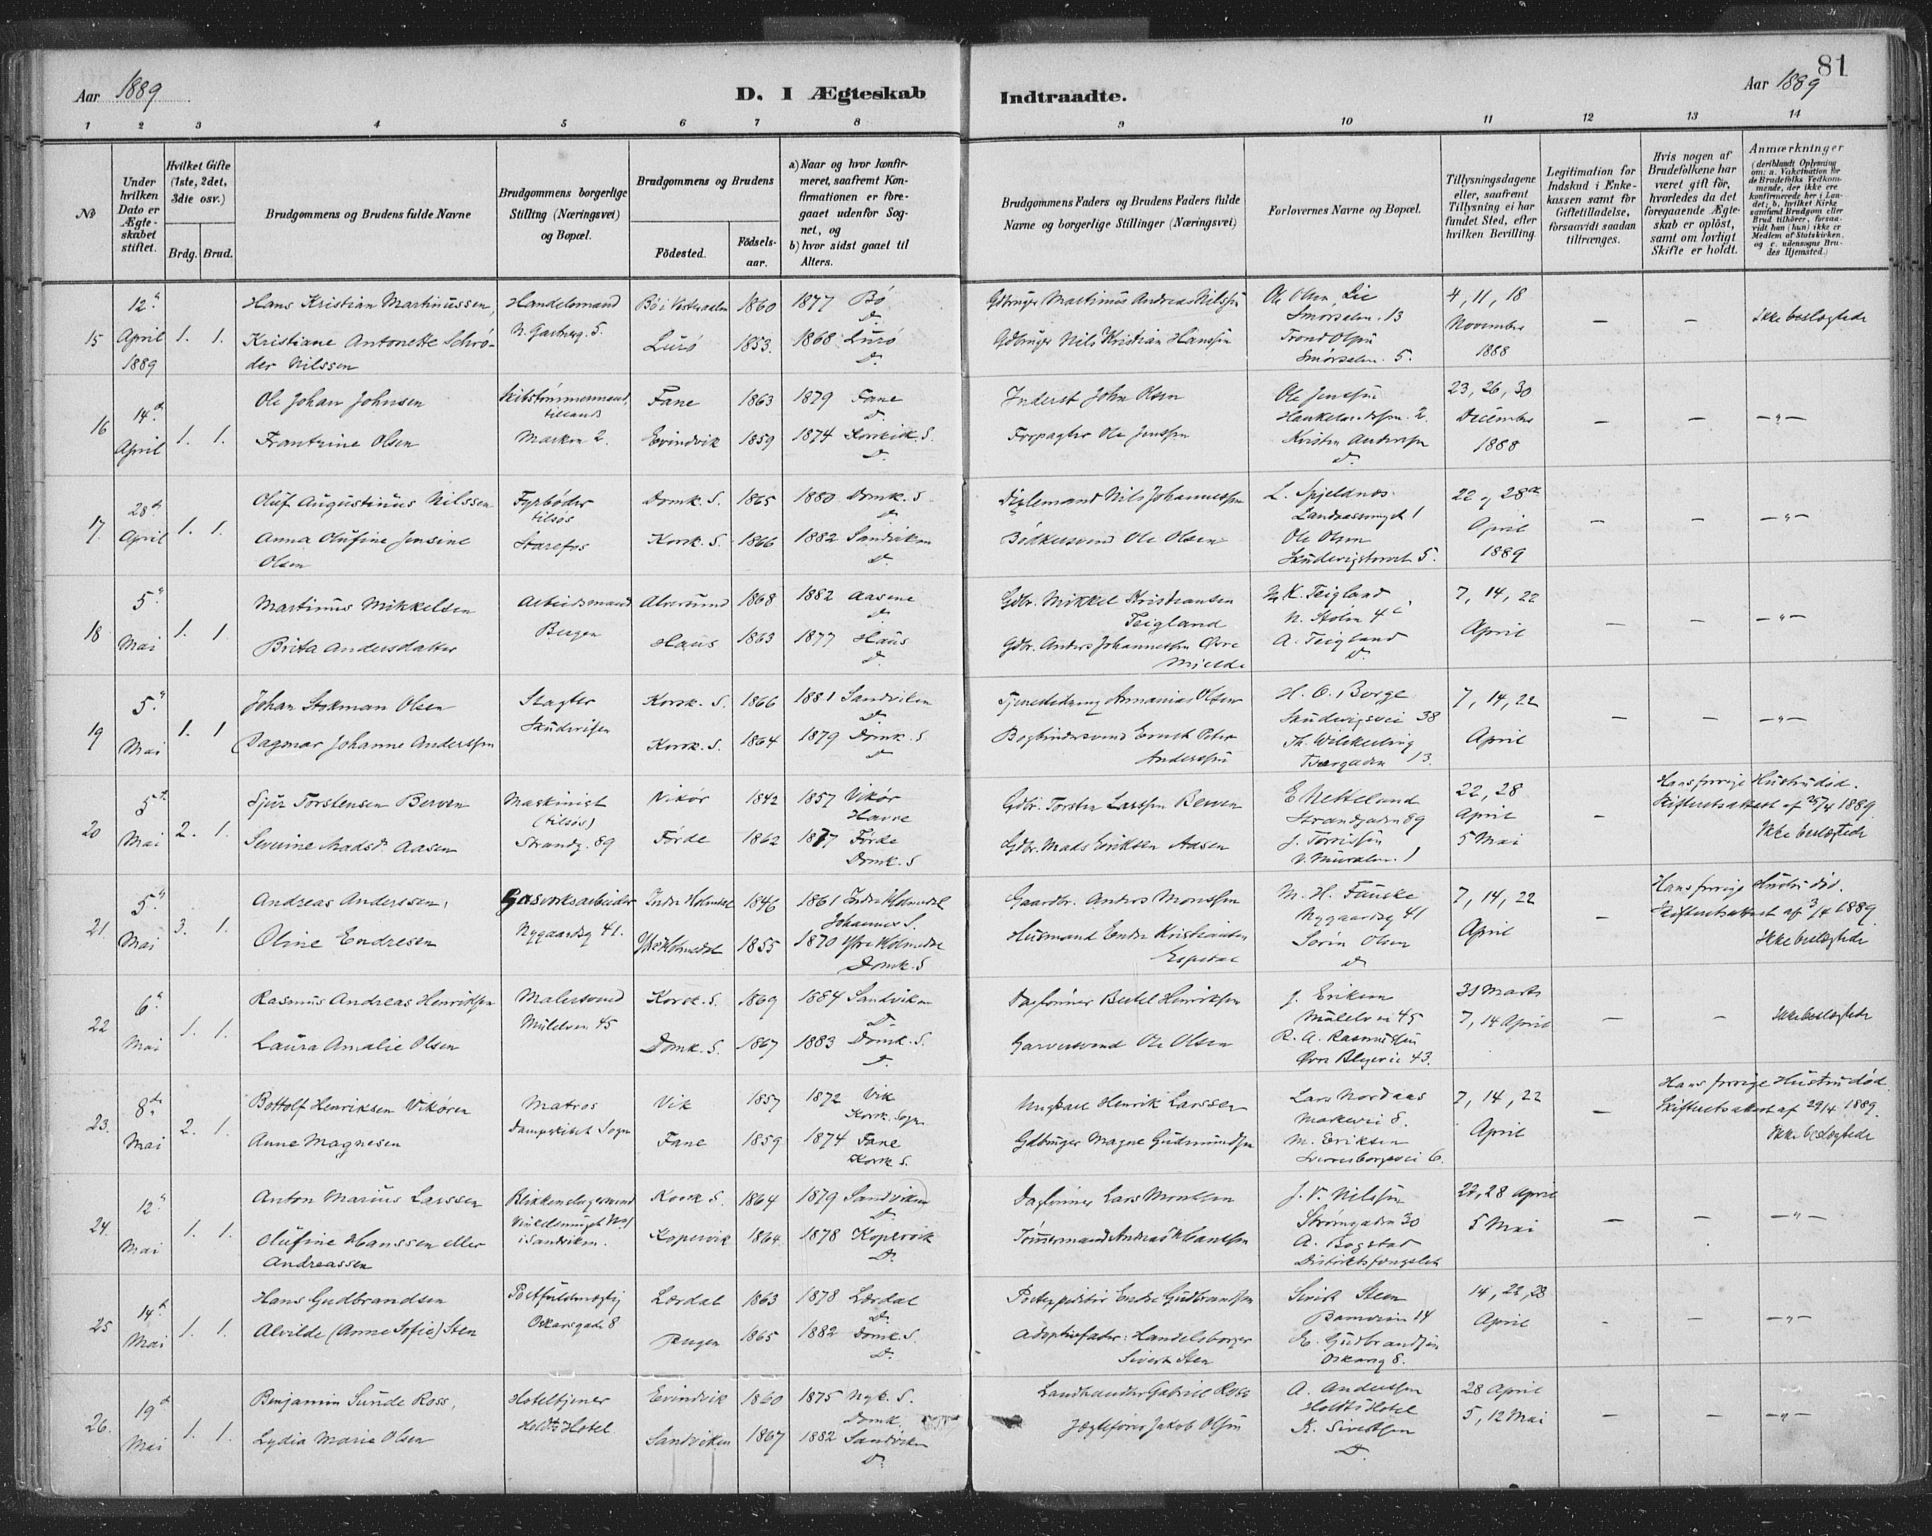 81
Aar 1889
D. I Ægteskab
Indtraadte.
Aar 1889
1 2 3 4 5 6 7 8 9 10 11 12 13 14
No
Under hvilken Dato er Ægteskabet stiftet.
Hvilket Gifte (1ste, 2det, 3die osv.)
Brdg. Brud.
Brudgommens og Brudens fulde Navne
Brudgommens borgerlige Stilling (Næringsvei) og Bopæl.
Brudgommens og Brudens
Födested.
Födselsaar.
a) Naar og hvor konfirmeret, saafremt Konfirmationen er foregaaet udenfor Sognet, og
b) hvor sidst gaaet til Alters.
Brudgommens Faders og Brudens Faders fulde Navne og borgerlige Stillinger (Næringsvei)
Forlovernes Navne og Bopæl.
Tillysningsdagene eller, saafremt Tillysning ei har fundet Sted, efter hvilken Bevilling.
Legitimation for Indskud i Enkekassen samt for Giftetilladelse, forsaavidt saadan tiltrænges.
Hvis nogen af Brudefolkene har været gift för, hvorledes da det foregaaende Ægteskab er oplöst, samt om lovligt Skifte er holdt.
Anmærkninger
(deriblandt Oplysning om: a. Vakcination for de Brudefolks Vedkommende, der ikke ere konfirmerede her i Landet; b, hvilket Kirkesamfund Brudgom eller Brud tilhörer, forsaavidt han (hun) ikke er Medlem af Statskirken, og c. udensogns Brudes Hjemsted.)
15 12te April 1889 1. 1.
Hans Kristian Martinussen, Handelsmand Bø i Vesteraalen 1860 1877 Bø Gdbruger Martinus Andreas Nilsen Ole Olsen Lie 4, 11, 18 Ikke beslægtede
N. Garberg. 5. D. Smørsalm. 13 November
Kristiane Antonette Schrøder Nilssen Lurö 1853. 1868 Lurö D. Gdbruger Nils Kristian Hanssen Trond Olsen Smørsalm. 5. 1888
16 14de April 1. 1.
Ole Johan Johnsen Skibstømmermand, Fane 1863 1879 Fane D. Inderst John Olsen Ole Jenssen 23, 26, 30 — „ —
Marken 2. December
Frantzine Olsen Evindvik 1859 1874 Korskirk. S. D. Ole Jenssen Kristen Anderssen D. 1888
17. 28de April 1. 1.
Oluf Augustinus Nilssen Fyrbøder tilsøs Domk. S. 1865 1880 Domk. S. D. Nils Johannessen L. Spjeldnæs 22 og 28de — „ —
Starefos April
Anna Olufine Jensine Olsen Korsk. S. 1866 1882 Sandviken D. Bødkersvend Ole Olsen Ole Olsen Skudevigstorvet 5. 1889
18 5te Mai 1. 1
Martinus Mikkelsen Arbeidsmand Alversund 1868 1882 Aasene D. Gdbr. Mikkel Kristiansen Teigland K. Teigland N. Stølen 4c 7, 14, 22 — „ —
Bergen April
Brita Andersdatter Haus 1863 1877 Haus D. Gdbr. Anders Johannessen Øvre Mjelde A. Teigland D.
19 5te Mai 1. 1
Johan Stokman Olsen Slagter Korsk. S. 1866 1881 Sandviken D. Ananias Olsen H. O. Borge Skudevigsvei 38 7, 14, 22 — „ —
Skudeviken April
Dagmar Johanne Anderssen Korsk. S. 1864 1879 Domk. S D Bogbindersvend Ernst Peter Anderssen Th. Wilckerling 13.
20 5te Mai 2. 1.
Sjur Torstensen Berven Maskinist (tilsøs) Vikør 1842 1857 Vikør Havre Gdbr. Torsten Larssen Berven E. Netteland Strandgaden 89 22, 28 April Hans forrige Hustru død. Skifteretsattest af 25/4 1889.
Strandg. 89
Severine Madsd. Aasen Førde 1862 1877 Førde Domk. S Gdbr. Mads Eriksen Aasen J. Torrissen V. Muralm. 1 5 Mai Ikke beslægtede
21. 5te Mai 3. 1.
Andreas Anderssen, Gasverksarbeider Indre Holmedal 1846 1861 Indre Holmedal Johannes S. Gaardbr. Anders Monssen M. H. Fauske Nygaardsg 41 7, 14, 22 Hans forrige Hustru død. Skifteretsattest af 3/4 1889.
Nygaardsg 41. April
Oline Endresen Ytre Holmedal 1855 1870 Ytre Holmedal Domk. S Husmand Endre Kristiansen Espedal Søren Olsen D Ikke beslægtede
22 6te Mai 1. 1.
Rasmus Andreas Henriksen Malersvend Korsk. S. 1869 1884 Sandviken D. Dagleiner Bertel Henriksen J. Eriksen Mulelvei 45 31 Marts Ikke beslægtede
Mulelven 45 7, 14 April
Laura Amalie Olsen Domk. S. 1867 1883 Domk. S. D. Garversvend Ole Olsen R. A. Rasmussen Øvre Blegevei 43.
23. 8de Mai 2. 1.
Bottolf Henriksen Vikøren Matros Vik 1857 1872 Vik Korsk. Sogn Henrik Larssen Lars Nordaas Markevei 8. 7, 14, 22 Hans forrige Hustru død. Skifteretsattest af 29/4 1889.
Dampskibet Sogn April
Anne Magnesen Fane 1859 1874 Fane Korsk S. Gdbruger Magne Gudmundsen M. Eriksen Sverresborgsvei 6. Ikke beslægtede
24. 12te Mai 1. 1.
Anton Marius Larssen Blikkenslagersvend Korsk S 1864 1879 Sandviken D. Dagleiner Lars Monssen J. V. Nilssen Strømgaden 30 22, 28 April — „ —
i Sandviken. 5 Mai
Olufine Hanssen eller Andreassen Kopervik 1864. 1878 Kopervik D. Tømmermand Andreas Hanssen A. Bogstad Distriktsfængslet
25 14de Mai 1. 1.
Hans Gudbrandsen Postfuldmægtig Lærdal 1863 1878 Lærdal D. Postexpeditør Endre Gudbrandsen Sivert Steen 14 14, 22, 28 — „ —
Oskarsgade 8 April
Alvilde (Anne Sofie) Sten Bergen 1865 1882 Domk. S. D. Adoptivfader: Handelsborger Sivert Sten E. Gudbrandsen Oskarsg 8.
26. 19de Mai 1. 1.
Benjamin Sunde Ross, Hoteltjener Evindvik 1860 1875 Nyk. S. Domk. Landhandler Gabriel Ross A. Anderssen Holdts Hotel 28 April — „ —
Holdts Hotel. 5, 12 Mai
Lydia Marie Olsen Sandviken 1867 1882 Sandviken D. Jægtefører Jakob Olsen K. Sivertsen D.